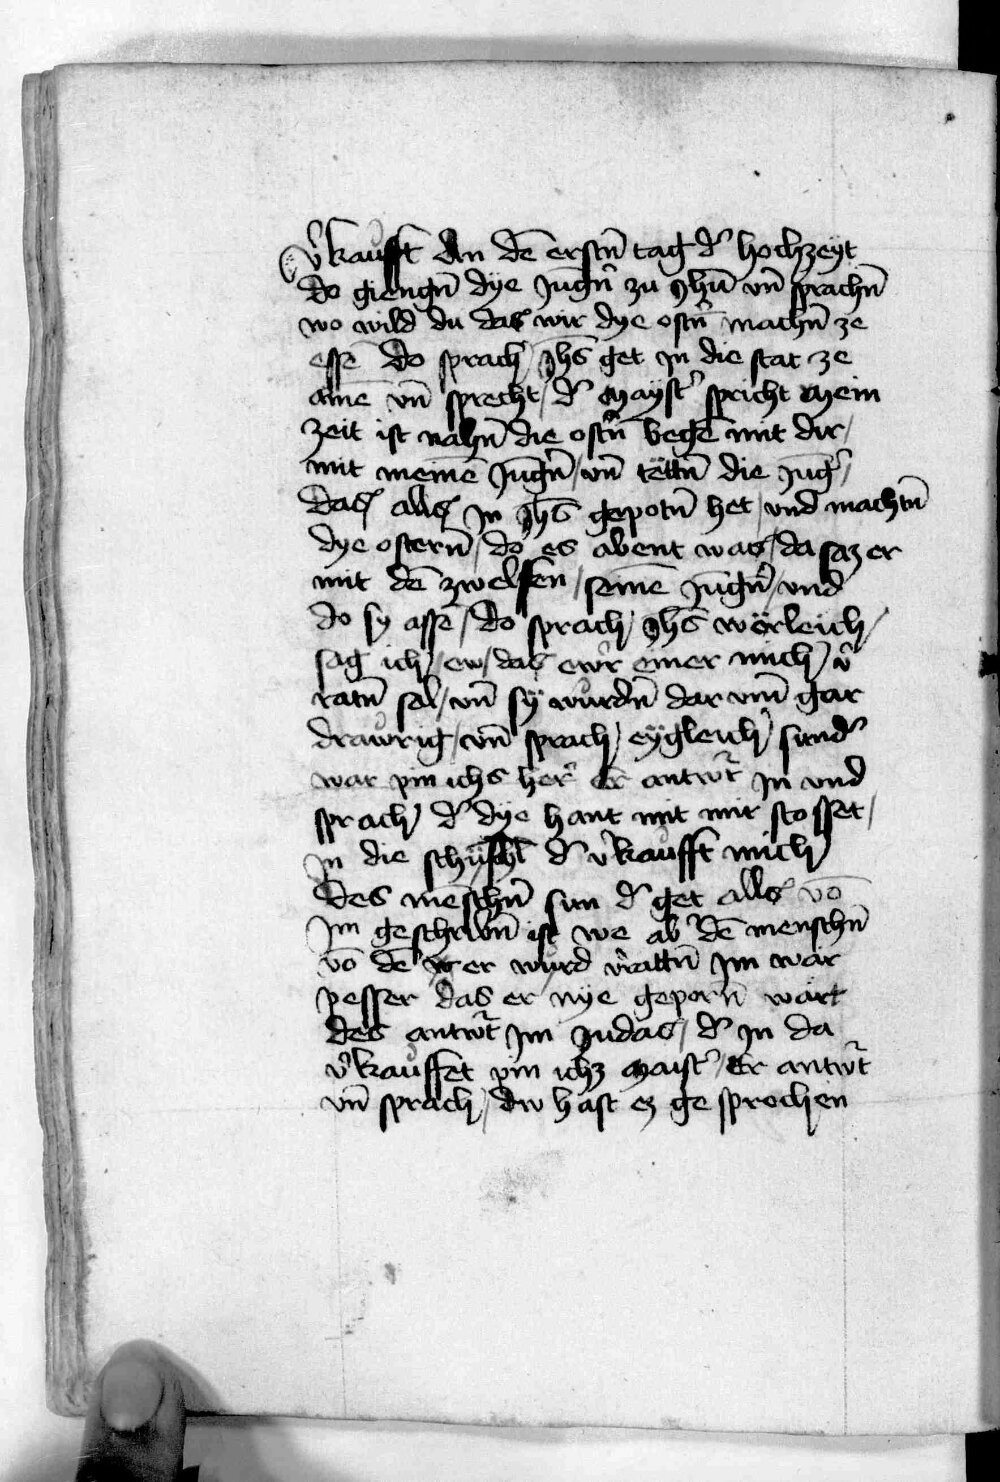 v̾kaufft An dē erstn̄ tag d̾ hochzeyt
do giengn̄ dye Jūgn̾ zu Jhū vn̄ sprachn̄
wo wild du das wir dye ostn̾ machn̄ ze
essē do sprach Jhs̄ get in die stat ze
aine vn̄ sprecht / d̾ Mayst̾ spricht Mein
zeit ist nahn̄ die ostn̾ begē mit dir /
mit meinē Jūgn̾ / vn̄ tëttn̄ die Jūg̾ /
das alls in Jhs̄ gepotn̄ het / vnd machtn̄
dye ostern̄ / do es abent was / da saz er
mit dē zwelfen / seinē Jūgn̾ / vnd
do sy assē / do sprach Jhs̄ wörleich /
sag ich / ew / das ewr̾ einer mich v̾
ratn̄ sal / vn̄ sÿ wurdn̄ dar vm̄ gar
drawrig / vn̄ sprach eÿgleich sund̾
war pin ichs her̾ er antwr̾t In vnd
sprach d̾ dye hant mit mir stosset /
in die schüsl̄ d̾ v̾kaufft mich
des mēschn̄ sun d̾ get alls vō
Im geschribn̄ ist we ab̾ dē menschn̄
vō dē er wurd v̾rattn̄ Im wär
pesser das er nye geporn̄ wärt
des antwr̾t Im Judas / d̾ In da
v̾kauffet pin ichz Maist̾ / Er antwr̾t
vn̄ sprach / dw hast ez ge sprochen